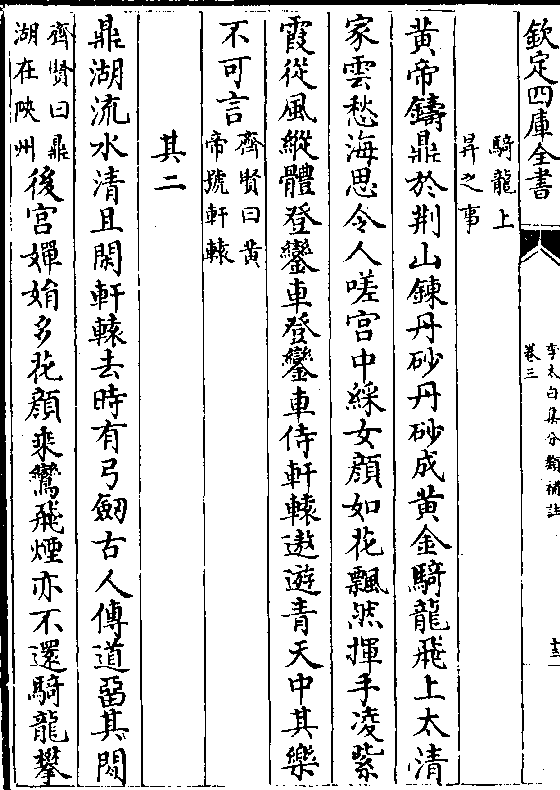 欽定四庫全書
李太白集分類補註
卷三
十三
騎龍上
昇之事
黄帝鑄鼎於荆山鍊丹砂丹砂成黄金騎龍飛上太清
家雲愁海思令人嗟宫中綵女顔如花飄然揮手凌紫
霞從風縱體登鑾車登鑾車侍軒轅遨遊青天中其樂
不可言
齊賢曰黄
帝號軒轅
其二
鼎湖流水清且閑軒轅去時有弓劒古人傳道留其間
齊賢曰鼎
湖在陜州
後宫嬋娟多花顔乘鸞飛煙亦不還騎龍攀